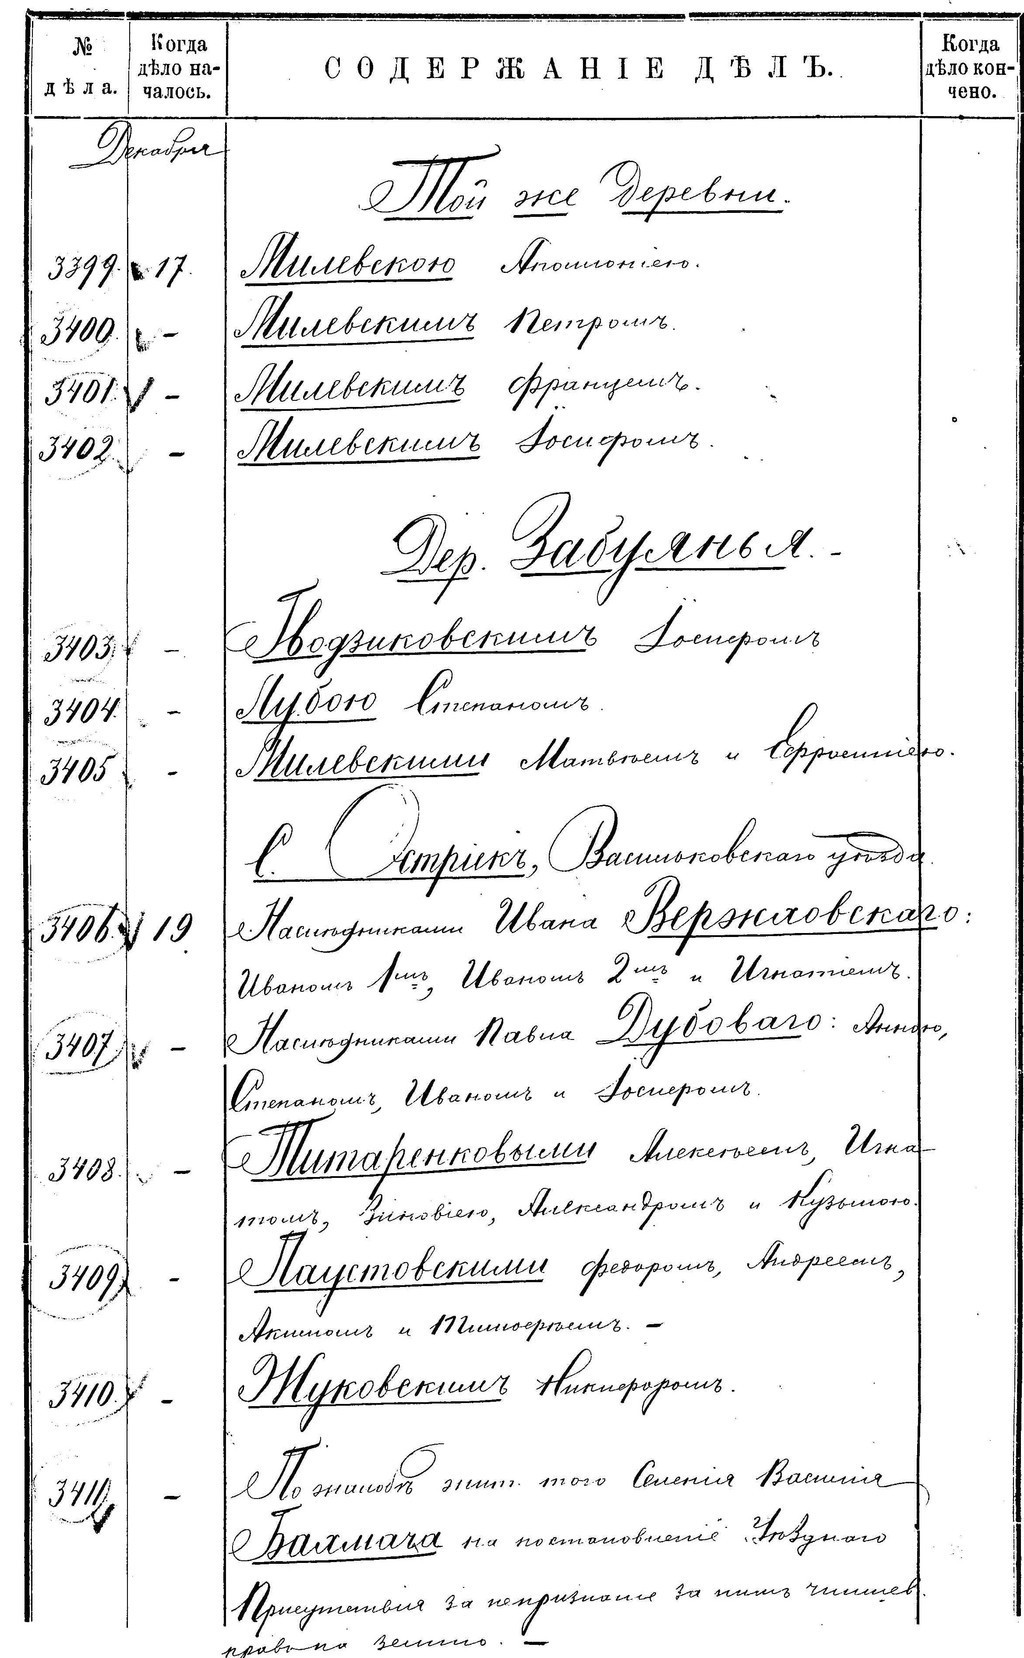 № дѣла.
Когда дѣло началось.
СОДЕРЖАНІЕ ДѢЛЪ.
Когда дѣло кончено.
Декабря
Той же деревни.
3399. 17. Милевскою Аполоніею.
3400. - Милевскимъ Петромъ.
3401. V - Милевскимъ Францемъ.
3402. - Милевскимъ Іосифомъ.
Дер. Забуянья. -
3403. - Гводзиковскимъ Іосифомъ
3404. - Лубою Степаномъ.
3405 - Милевскими Матвѣемъ и Ефросиніею.
С. Острiекъ, Васильковскаго уѣзда.
3406. V 19 Наслѣдниками Ивана Вержловскаго:
Иваномъ 1мъ, Иваномъ 2мъ и Игнатіемъ.
3407 V - Наслѣдниками Павла Дубоваго: Анною,
Степаномъ, Иваномъ и Іосифомъ.
3408. - Титаренковыми Алексѣемъ, Игна-
томъ, Зиновіею, Александромъ и Кузьмою.
3409 - Паустовскими Федоромъ, Андреемъ,
Акимомъ и Тимофѣемъ. -
3410. - Жуковскимъ Никифоромъ.
3411 - По жалобѣ жит. того Селенія Василія
Балмача на постановленіе Уѣзднаго
Присутствія за непризнаніе за нимъ чиншев.
права на землю. -